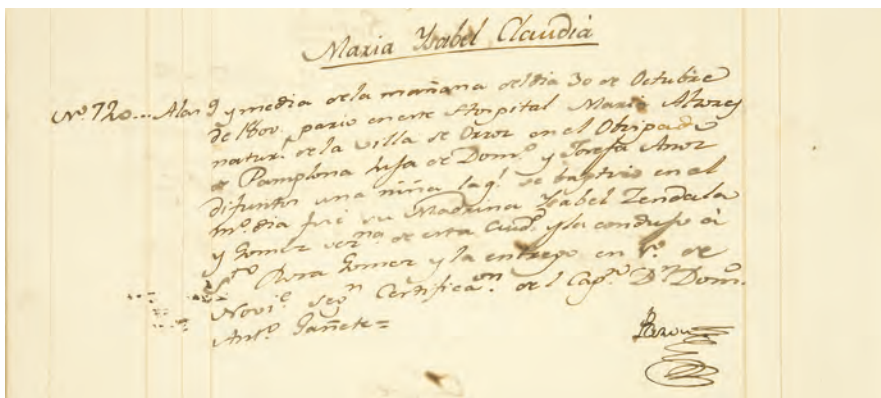 Maria Ysabel Claudia
Nº 720... A las 9 y media de la mañana del dia 30 de Octubre
de 1800. pario en este Hospital Maria Alvarez
natur.l de la villa de Orroz en el Obispado
de Pamplona hija de Dom.º y Josefa Anoz
difuntos una niña la q.l se baptizó en el
m.º dia fué su Madrina Ysabel Zendala
y Gomez vez.na de esta Ciud.d y la condujo á
Rosa Gomez y la entrego en 1.º de
Novi.e seg.n Certifica.on del Cap.n D.n Dom.º
Ant.º Gañete=